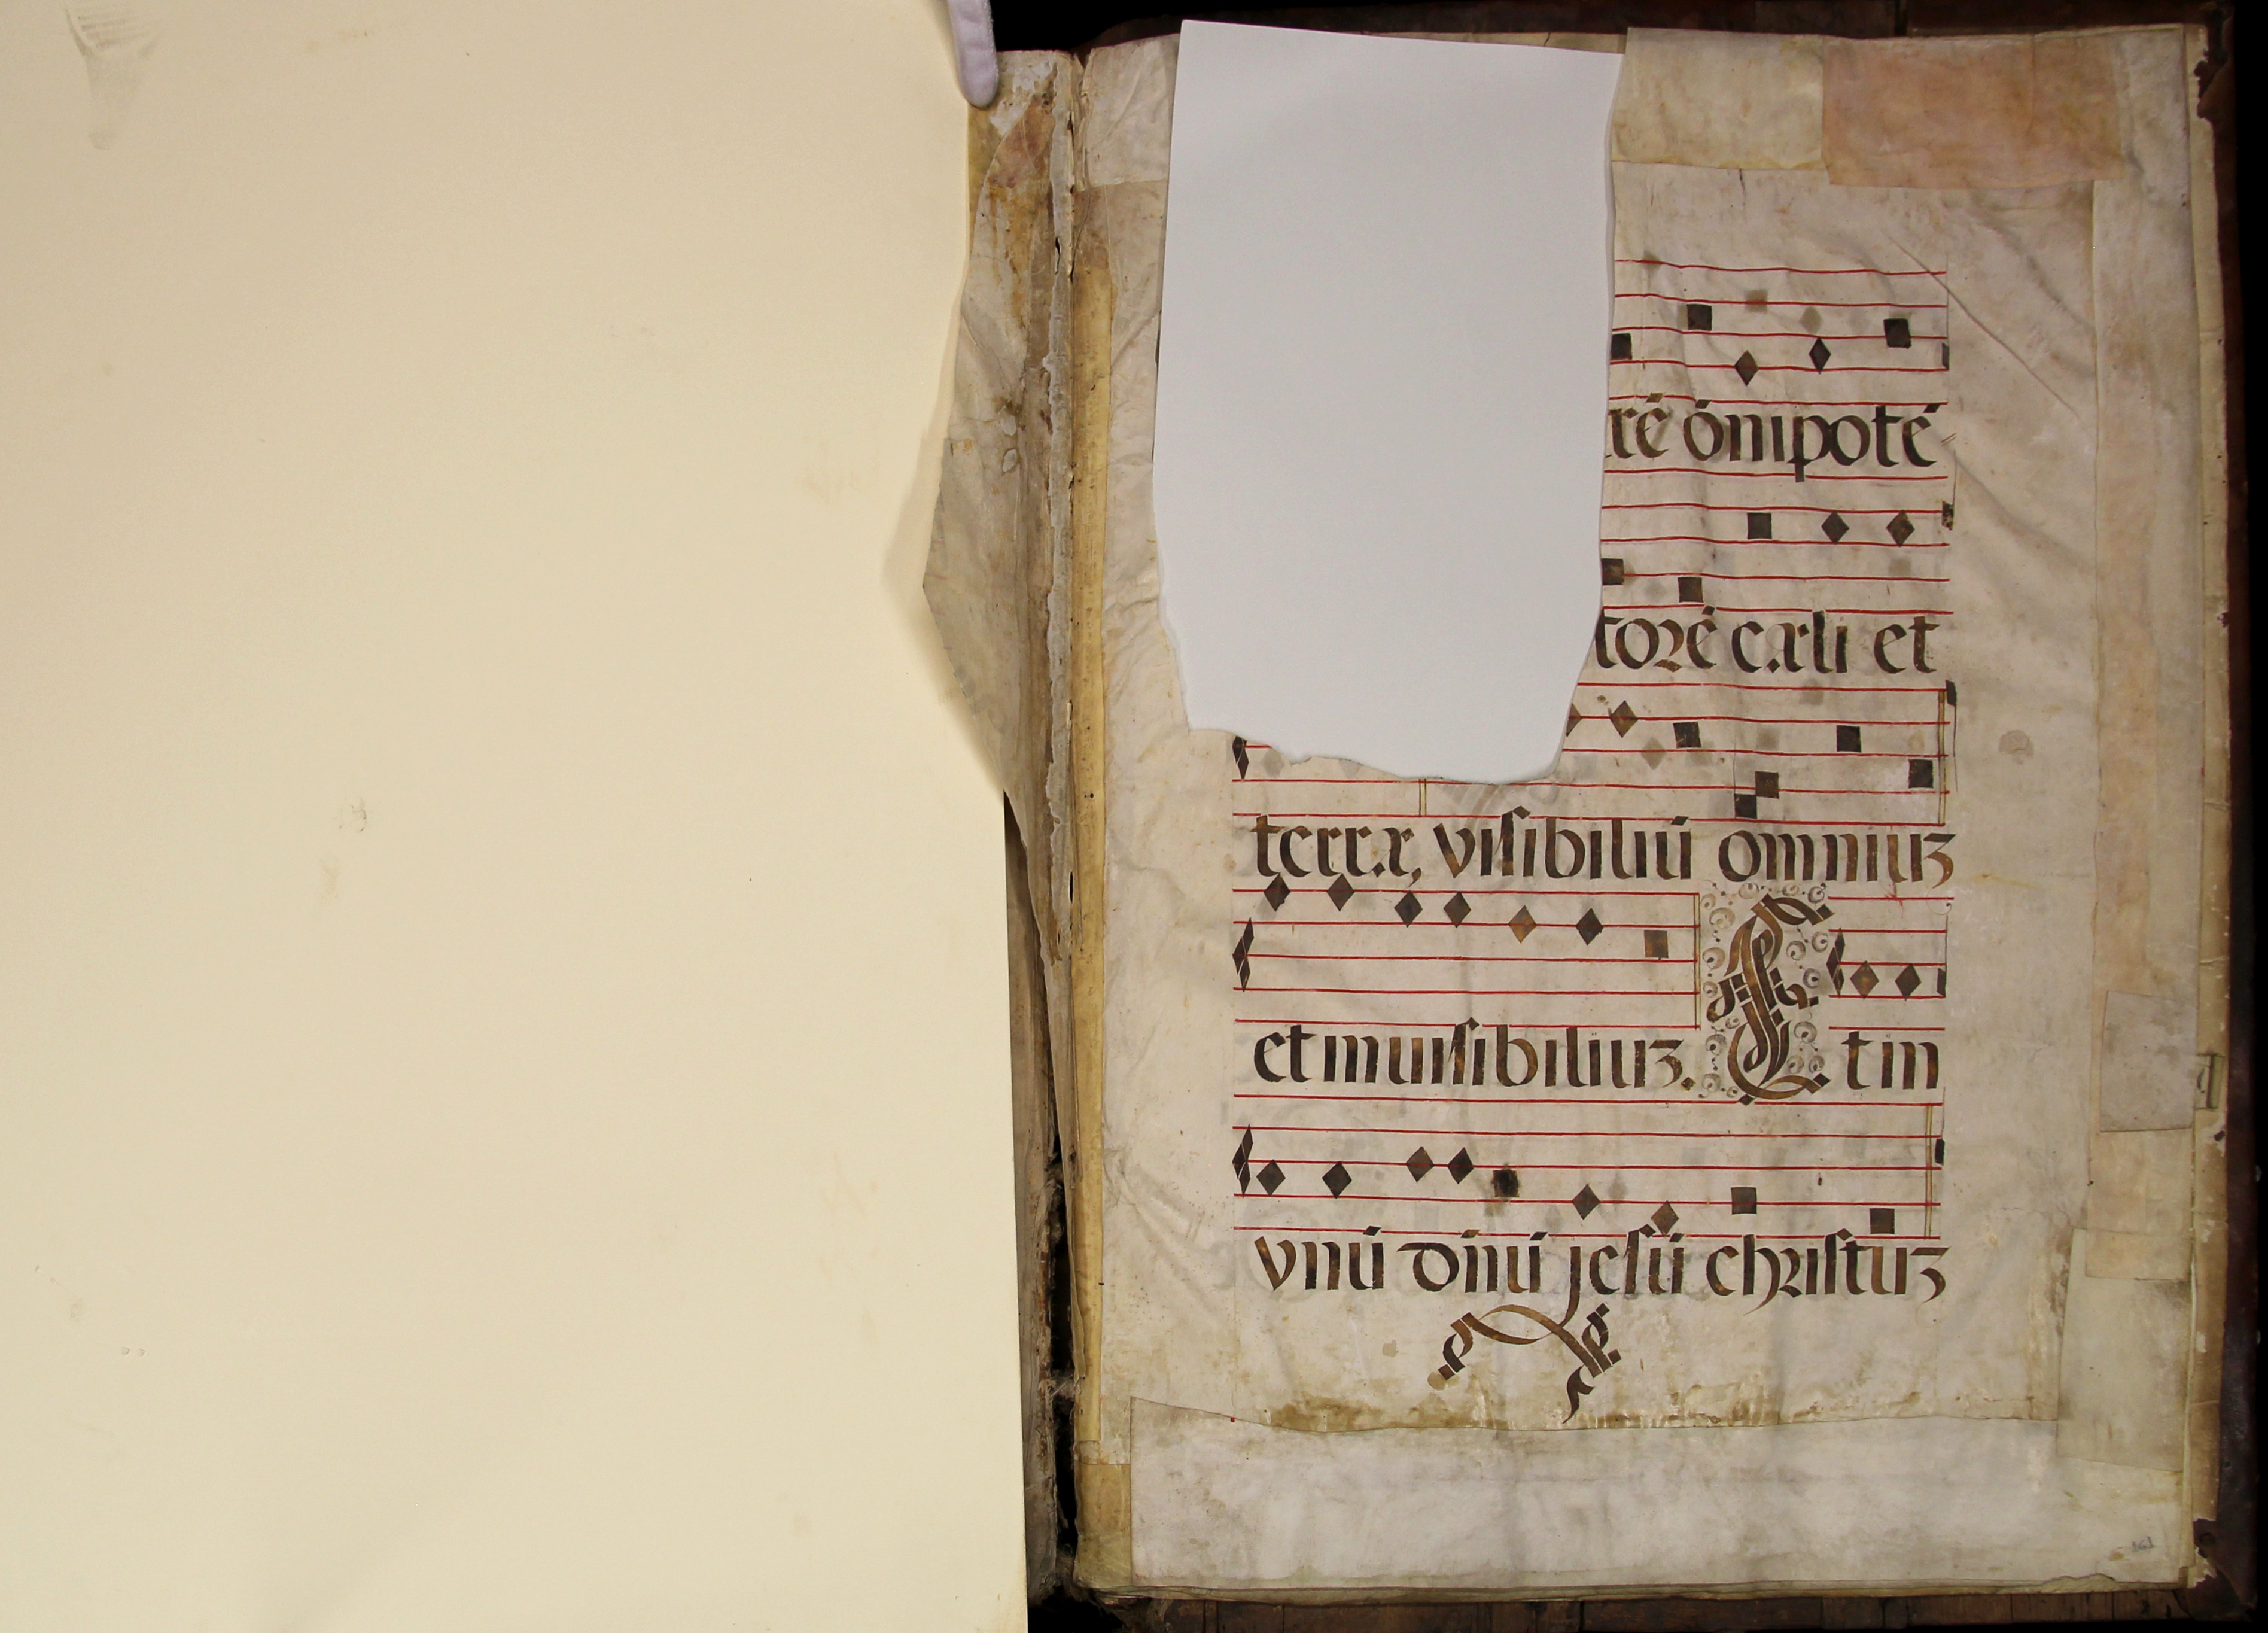 rē ōnipotē
torē cæli et
terræ, visibiliū omniuz
et inuisibiliuz. Et in
vnū dn̄ū jesū christuz
161